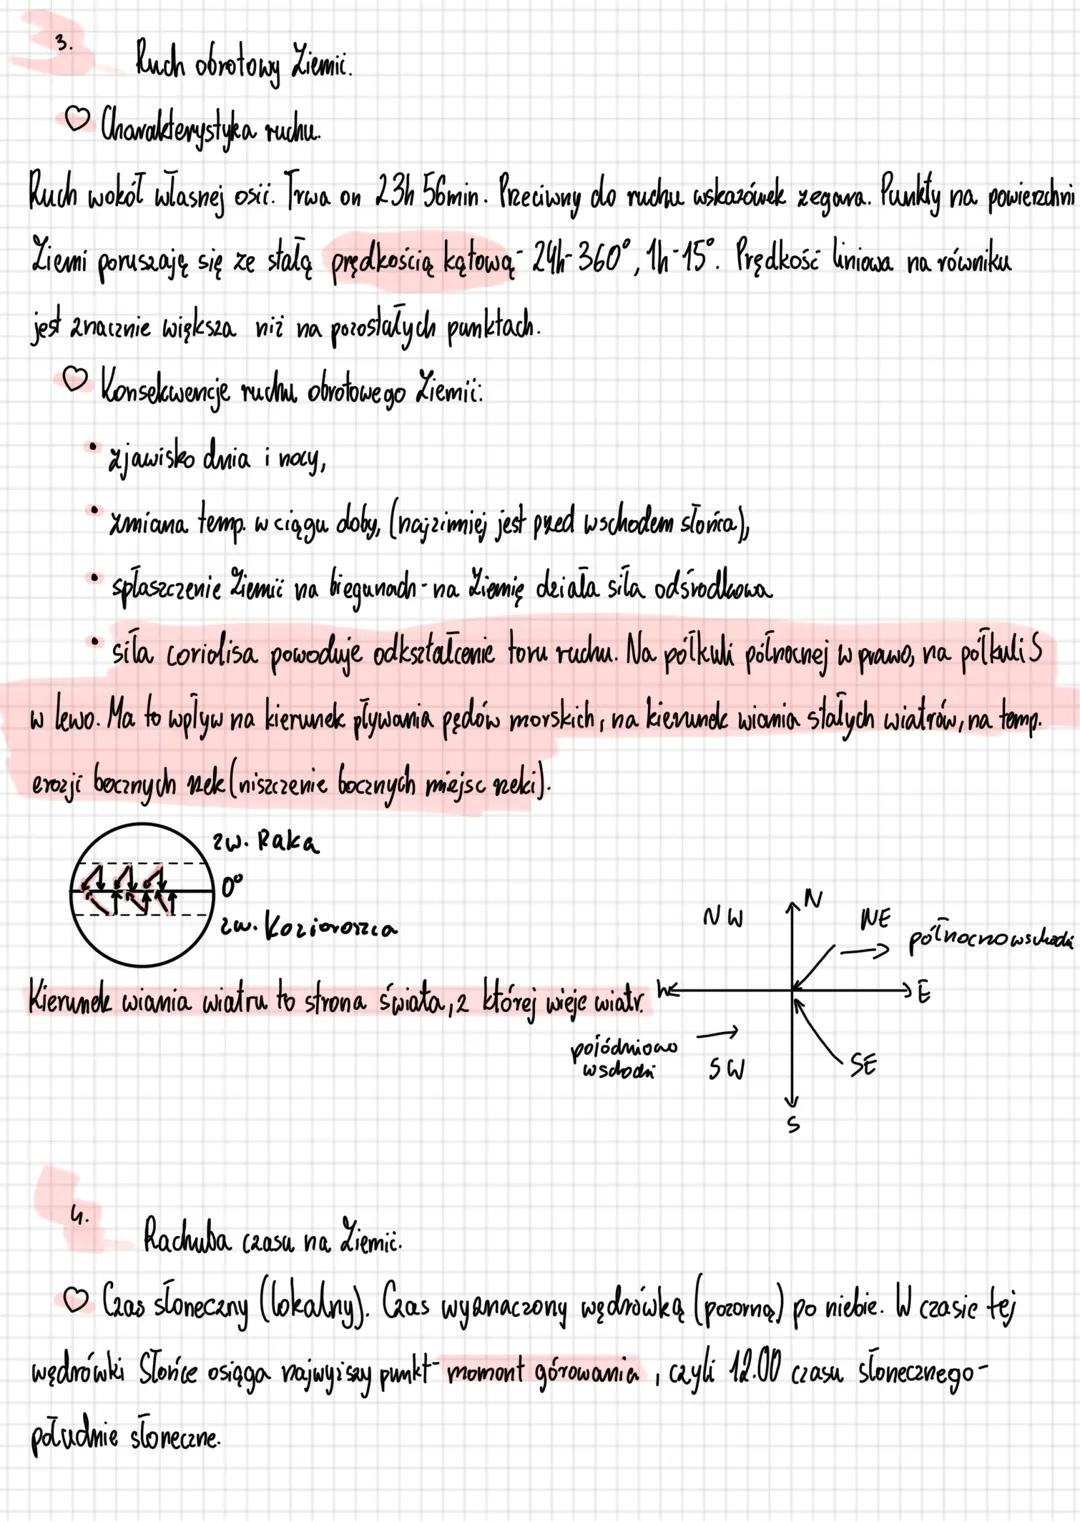 3.
Ruch obrotowy Ziemii.
♡ Charakterystyka ruchu.
Ruch wokół własnej osii. Trwa on 23h 56min. Przeciwny do ruchu wskazówek zegara. Punkty na powierzchni
Ziemi poruszają się ze stałą prędkością kątową - 24h-360°, 1h-15°. Prędkość liniowa na równiku
jest znacznie większa niż na pozostałych punktach.
♡ Konsekwencje ruchu obrotowego Ziemii:
• zjawisko dnia i nocy,
• zmiana temp. w ciągu doby, (najzimniej jest przed wschodem słońca),
• spłaszczenie Ziemii na biegunach - na Ziemię działa siła odśrodkowa
• siła coriolisa powoduje odkształcenie toru ruchu. Na półkuli północnej w prawo, na półkuli S
w lewo. Ma to wpływ na kierunek pływania pędów morskich, na kierunek wiania stałych wiatrów, na temp.
erozji bocznych rzek (niszczenie bocznych miejsc rzeki).
zw. Raka
0°
zw. Koziorożca
N
NW
NE
północnowschodni
Kierunek wiania wiatru to strona świata, z której wieje wiatr.
W
E
południowo
wschodni
SW
SE
S
4.
Rachuba czasu na Ziemii.
♡ Czas słoneczny (lokalny). Czas wyznaczony wędrówką (pozorną) po niebie. W czasie tej
wędrówki Słońce osiąga najwyższy punkt - moment górowania, czyli 12.00 czasu słonecznego -
południe słoneczne.